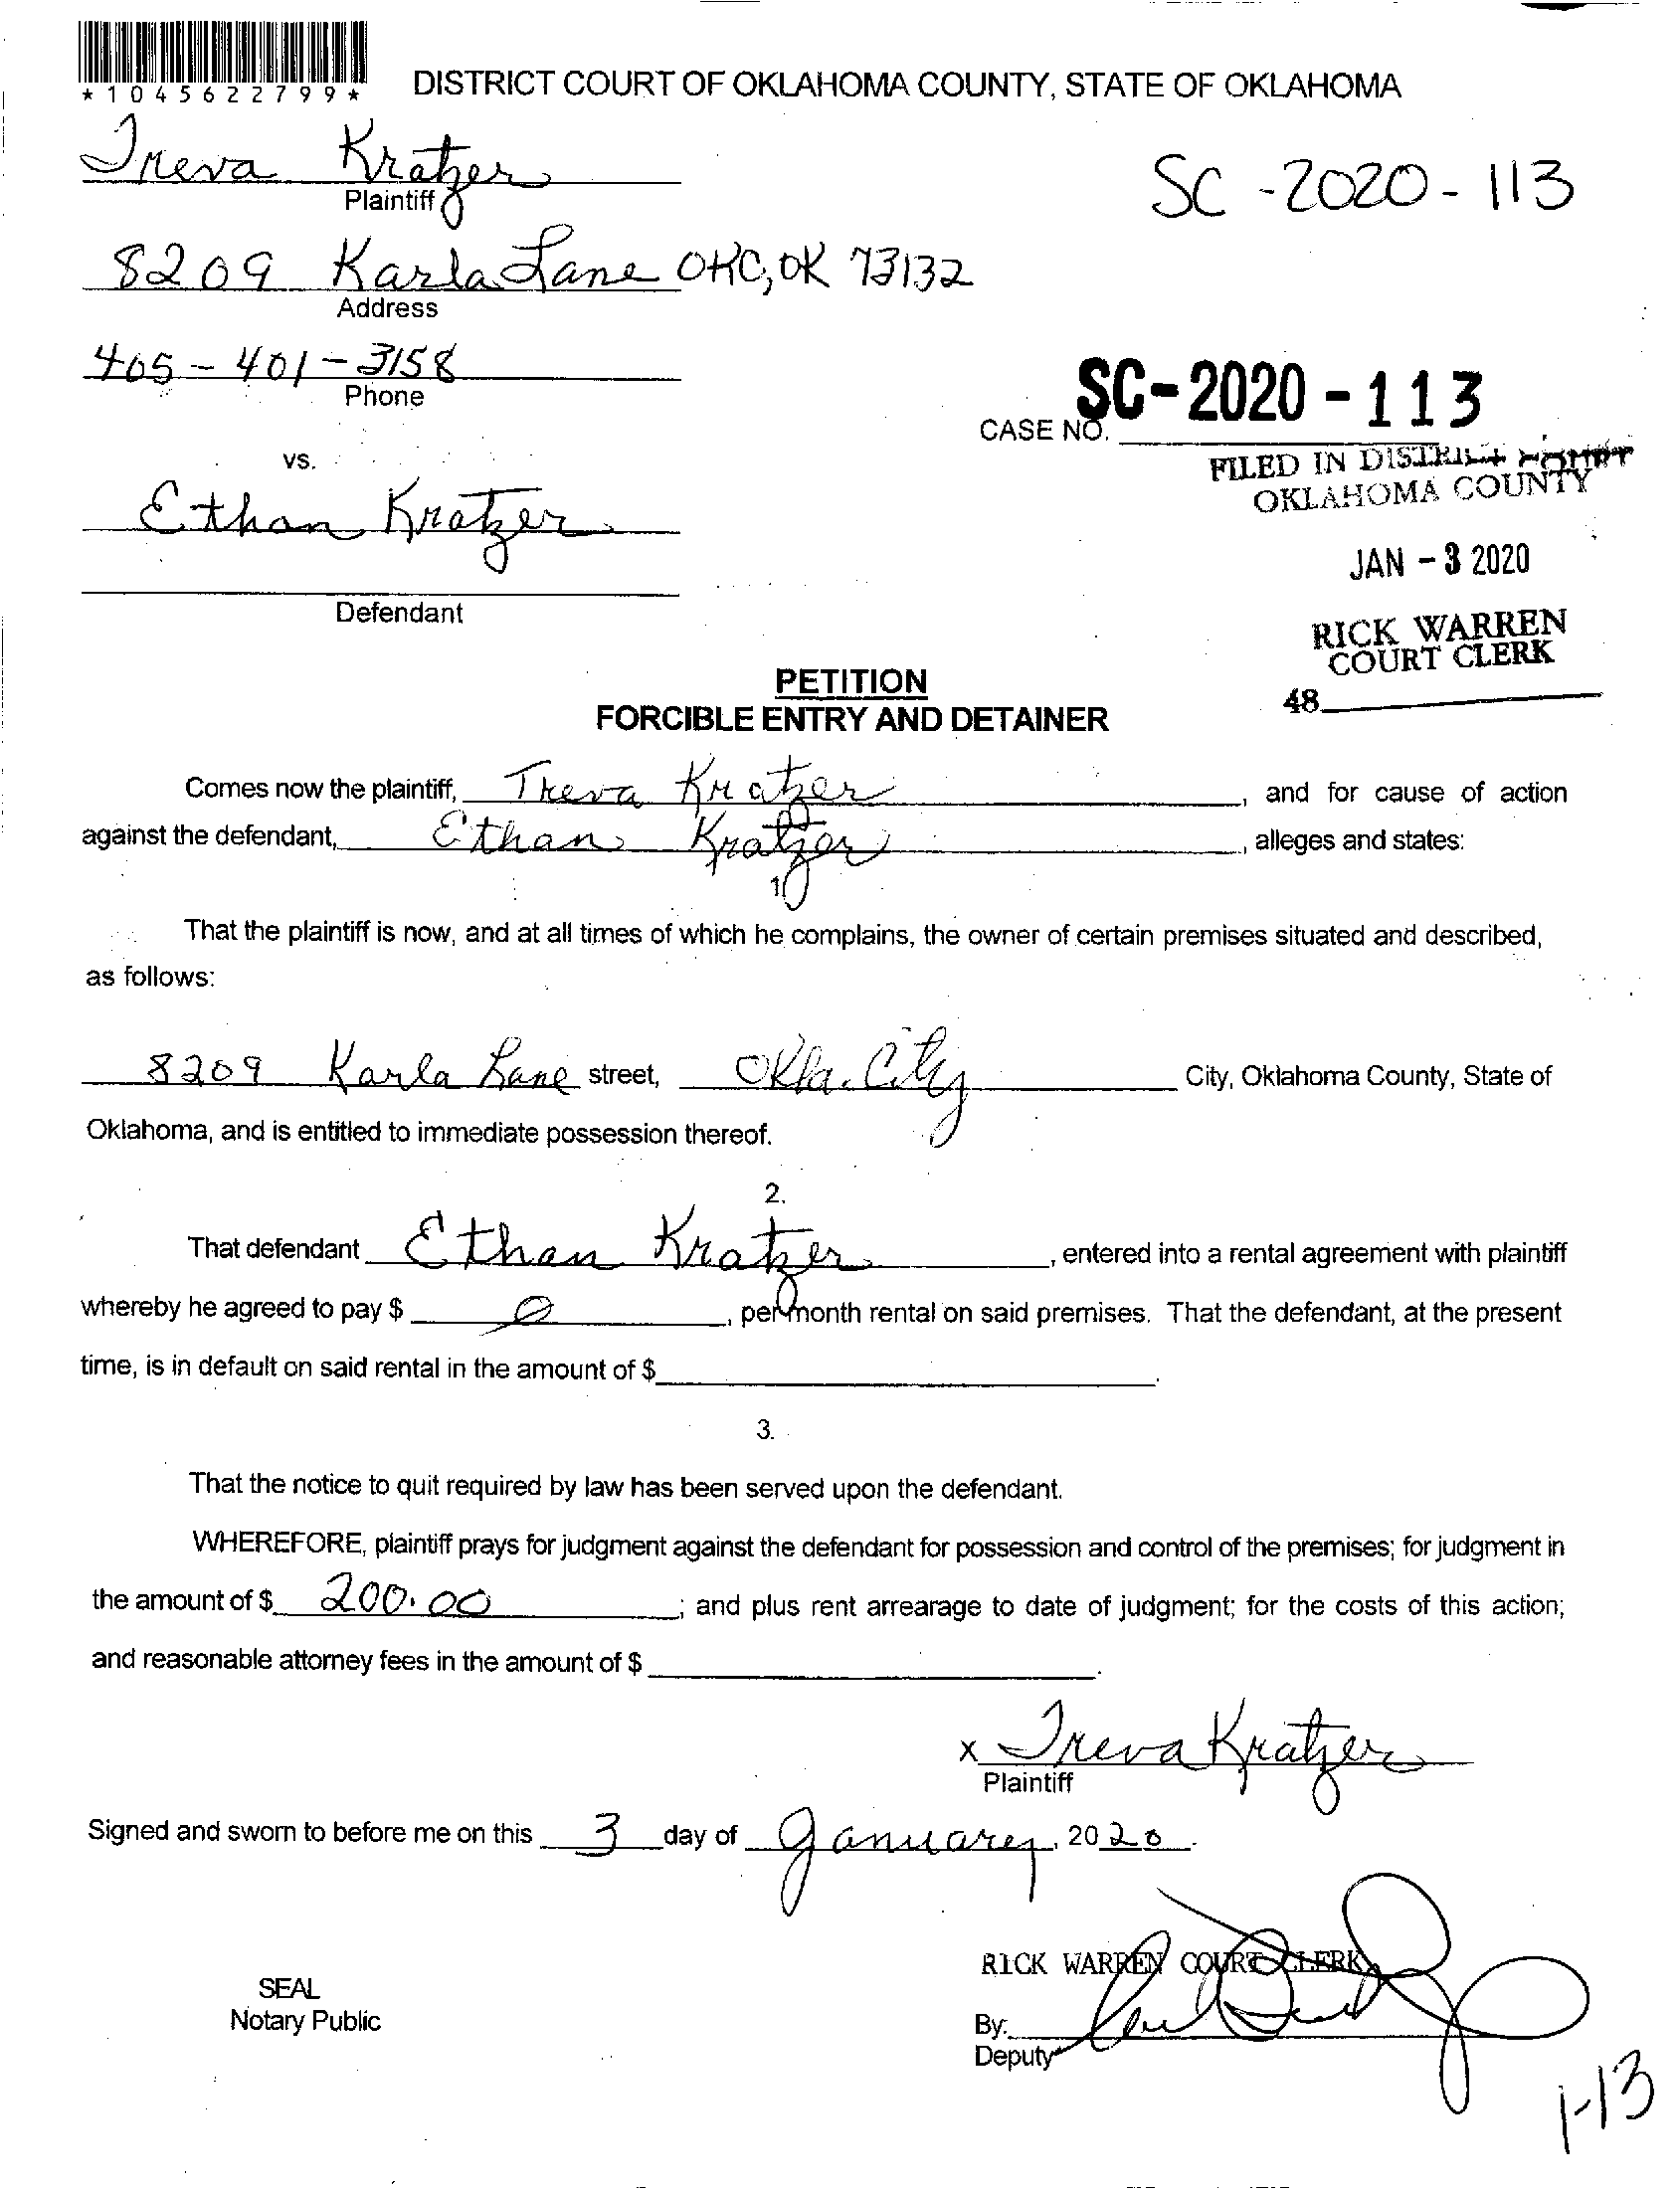 *1045622799*
DISTRICT COURT OF OKLAHOMA COUNTY, STATE OF OKLAHOMA
Treva Kratzer
Plaintiff
SC-2020-113
8209 Karla Lane OKC, OK 73132
Address
405-401-3158
Phone
SC-2020-113
CASE NO.
vs.
FILED IN DISTRICT COURT
OKLAHOMA COUNTY
Ethan Kratzer
JAN -3 2020
Defendant
RICK WARREN
COURT CLERK
48
PETITION
FORCIBLE ENTRY AND DETAINER
Comes now the plaintiff, Treva Kratzer, and for cause of action
against the defendant, Ethan Kratzer, alleges and states:
1
That the plaintiff is now, and at all times of which he complains, the owner of certain premises situated and described,
as follows:
8209 Karla Lane street, Okla. City City, Oklahoma County, State of
Oklahoma, and is entitled to immediate possession thereof.
2.
That defendant Ethan Kratzer, entered into a rental agreement with plaintiff
whereby he agreed to pay $ 0, per month rental on said premises. That the defendant, at the present
time, is in default on said rental in the amount of $ .
3.
That the notice to quit required by law has been served upon the defendant.
WHEREFORE, plaintiff prays for judgment against the defendant for possession and control of the premises; for judgment in
the amount of $ 200.00; and plus rent arrearage to date of judgment; for the costs of this action;
and reasonable attorney fees in the amount of $ .
x Treva Kratzer
Plaintiff
Signed and sworn to before me on this 3 day of January, 2020.
RICK WARREN COURT CLERK
SEAL
Notary Public
By:
Deputy
1-13